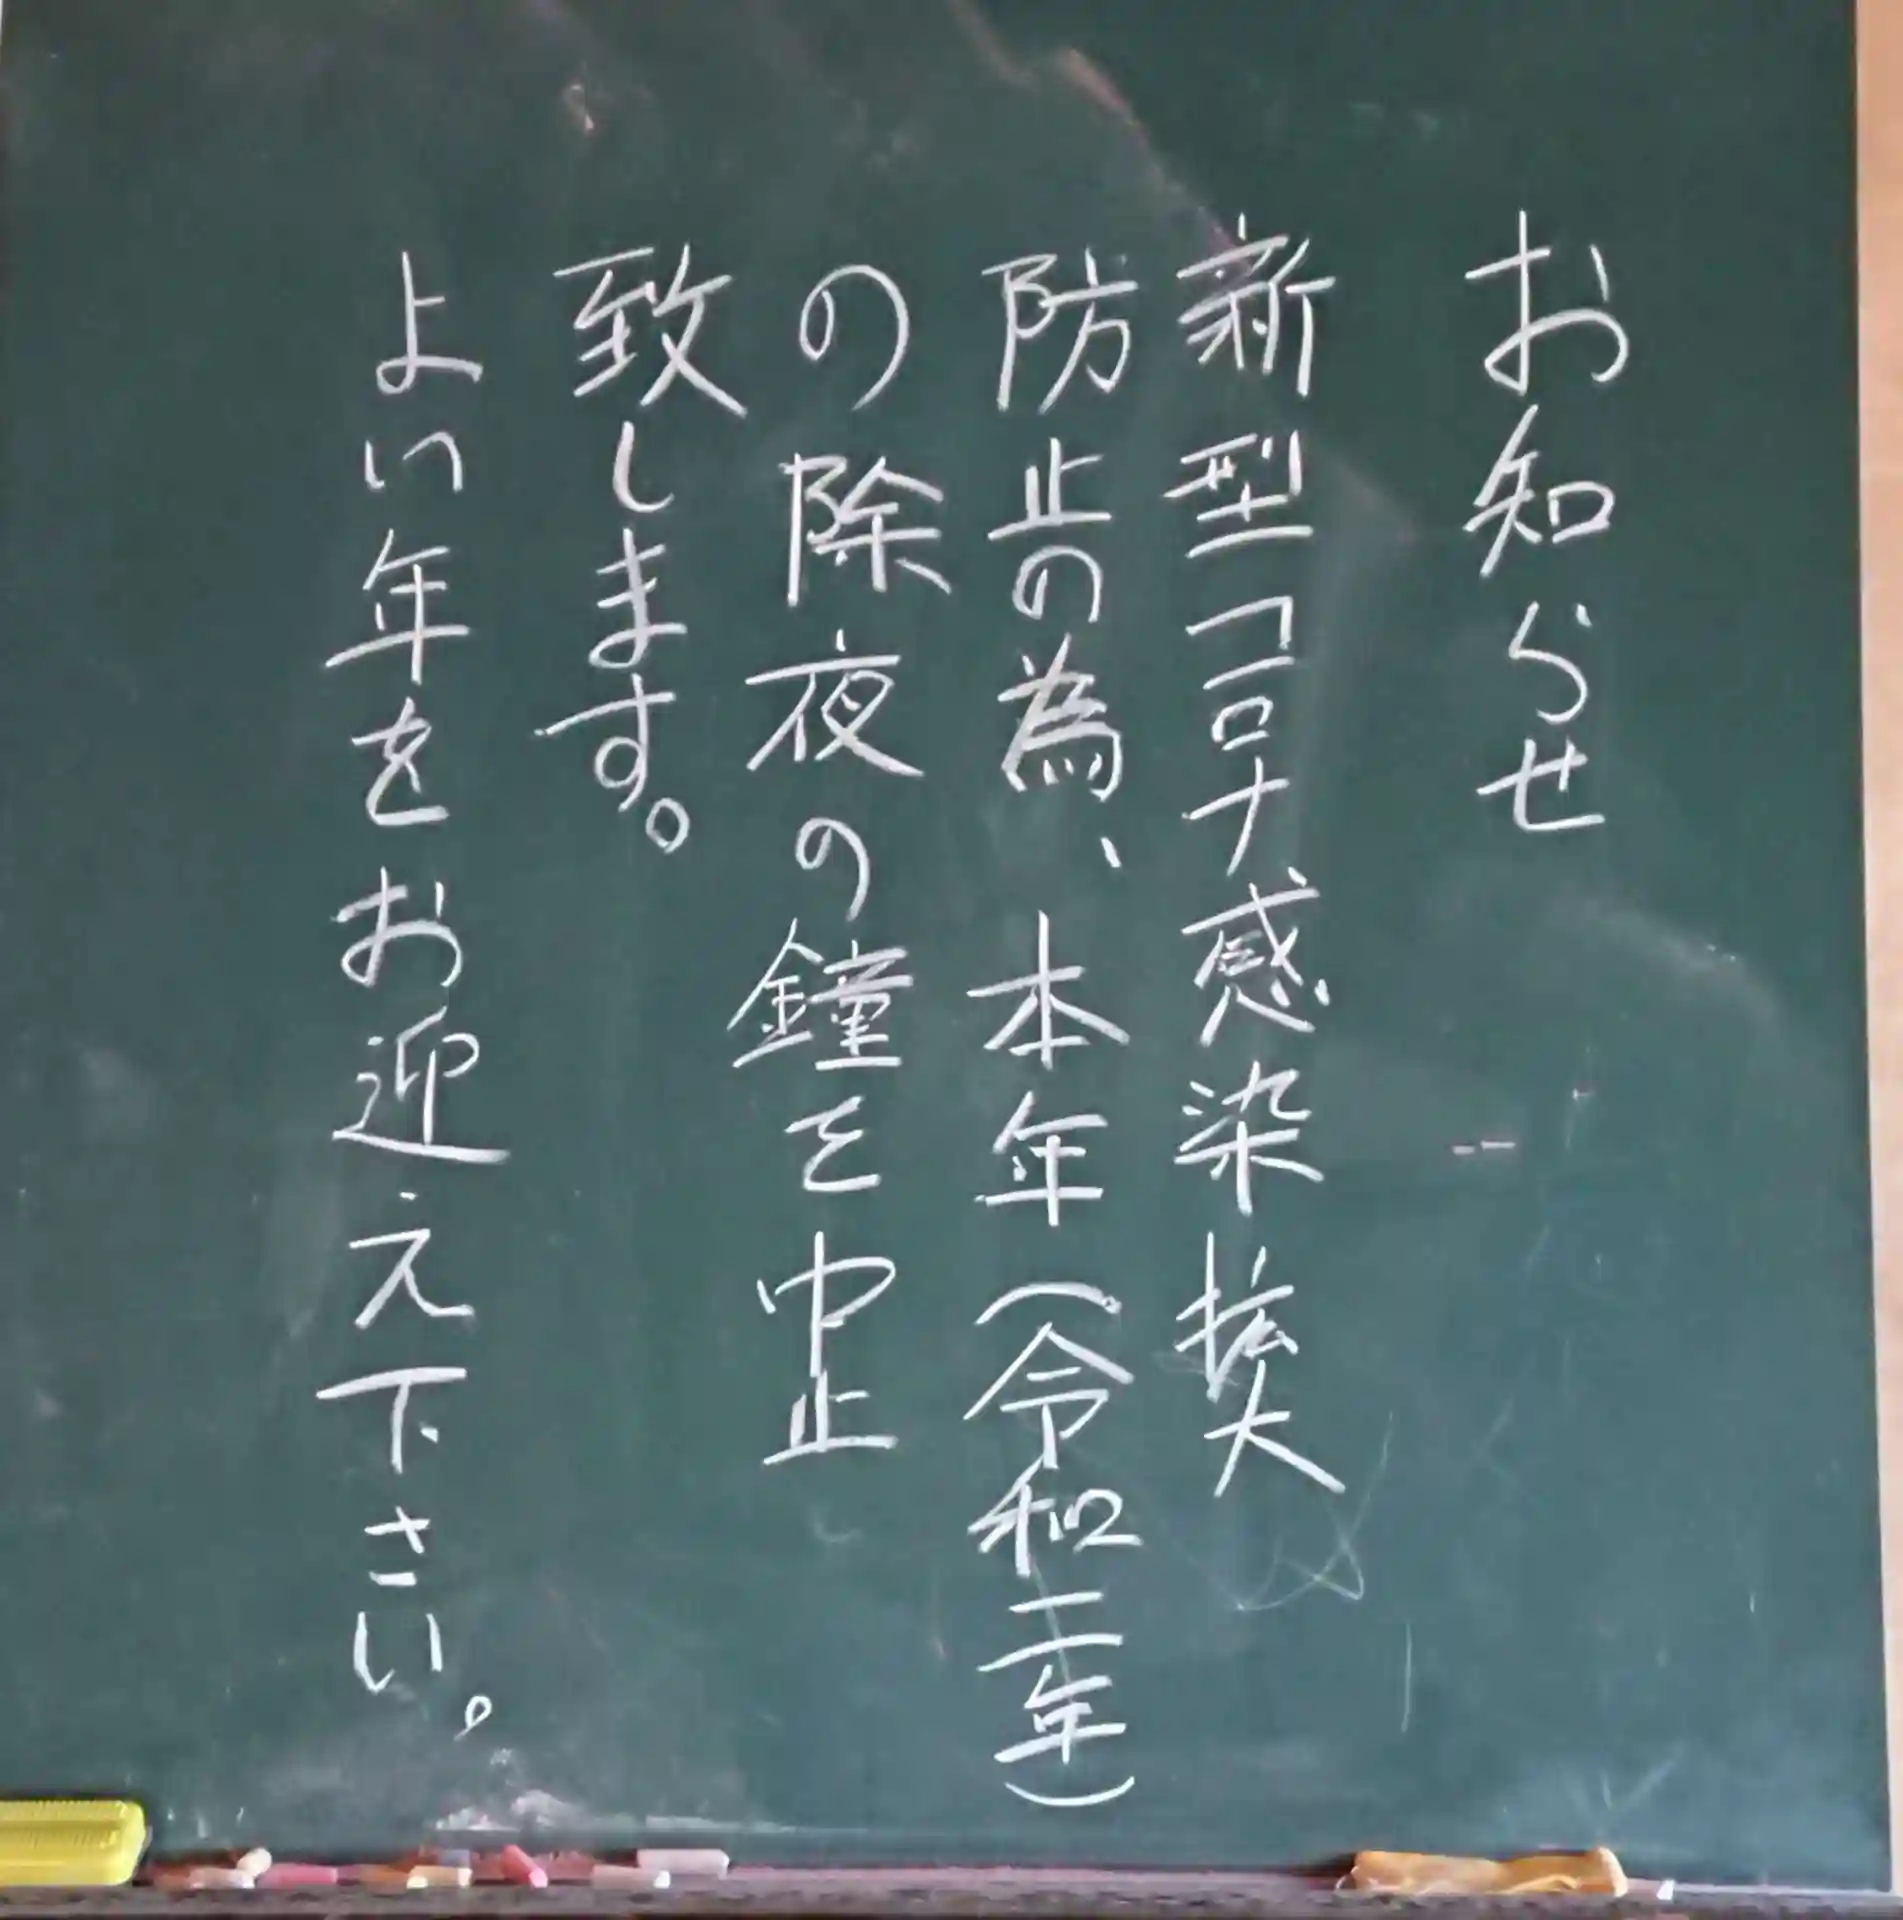 お知らせ
新型コロナ感染拡大
防止の為、本年(令和二年)
の除夜の鐘を中止
致します。
よい年をお迎え下さい。